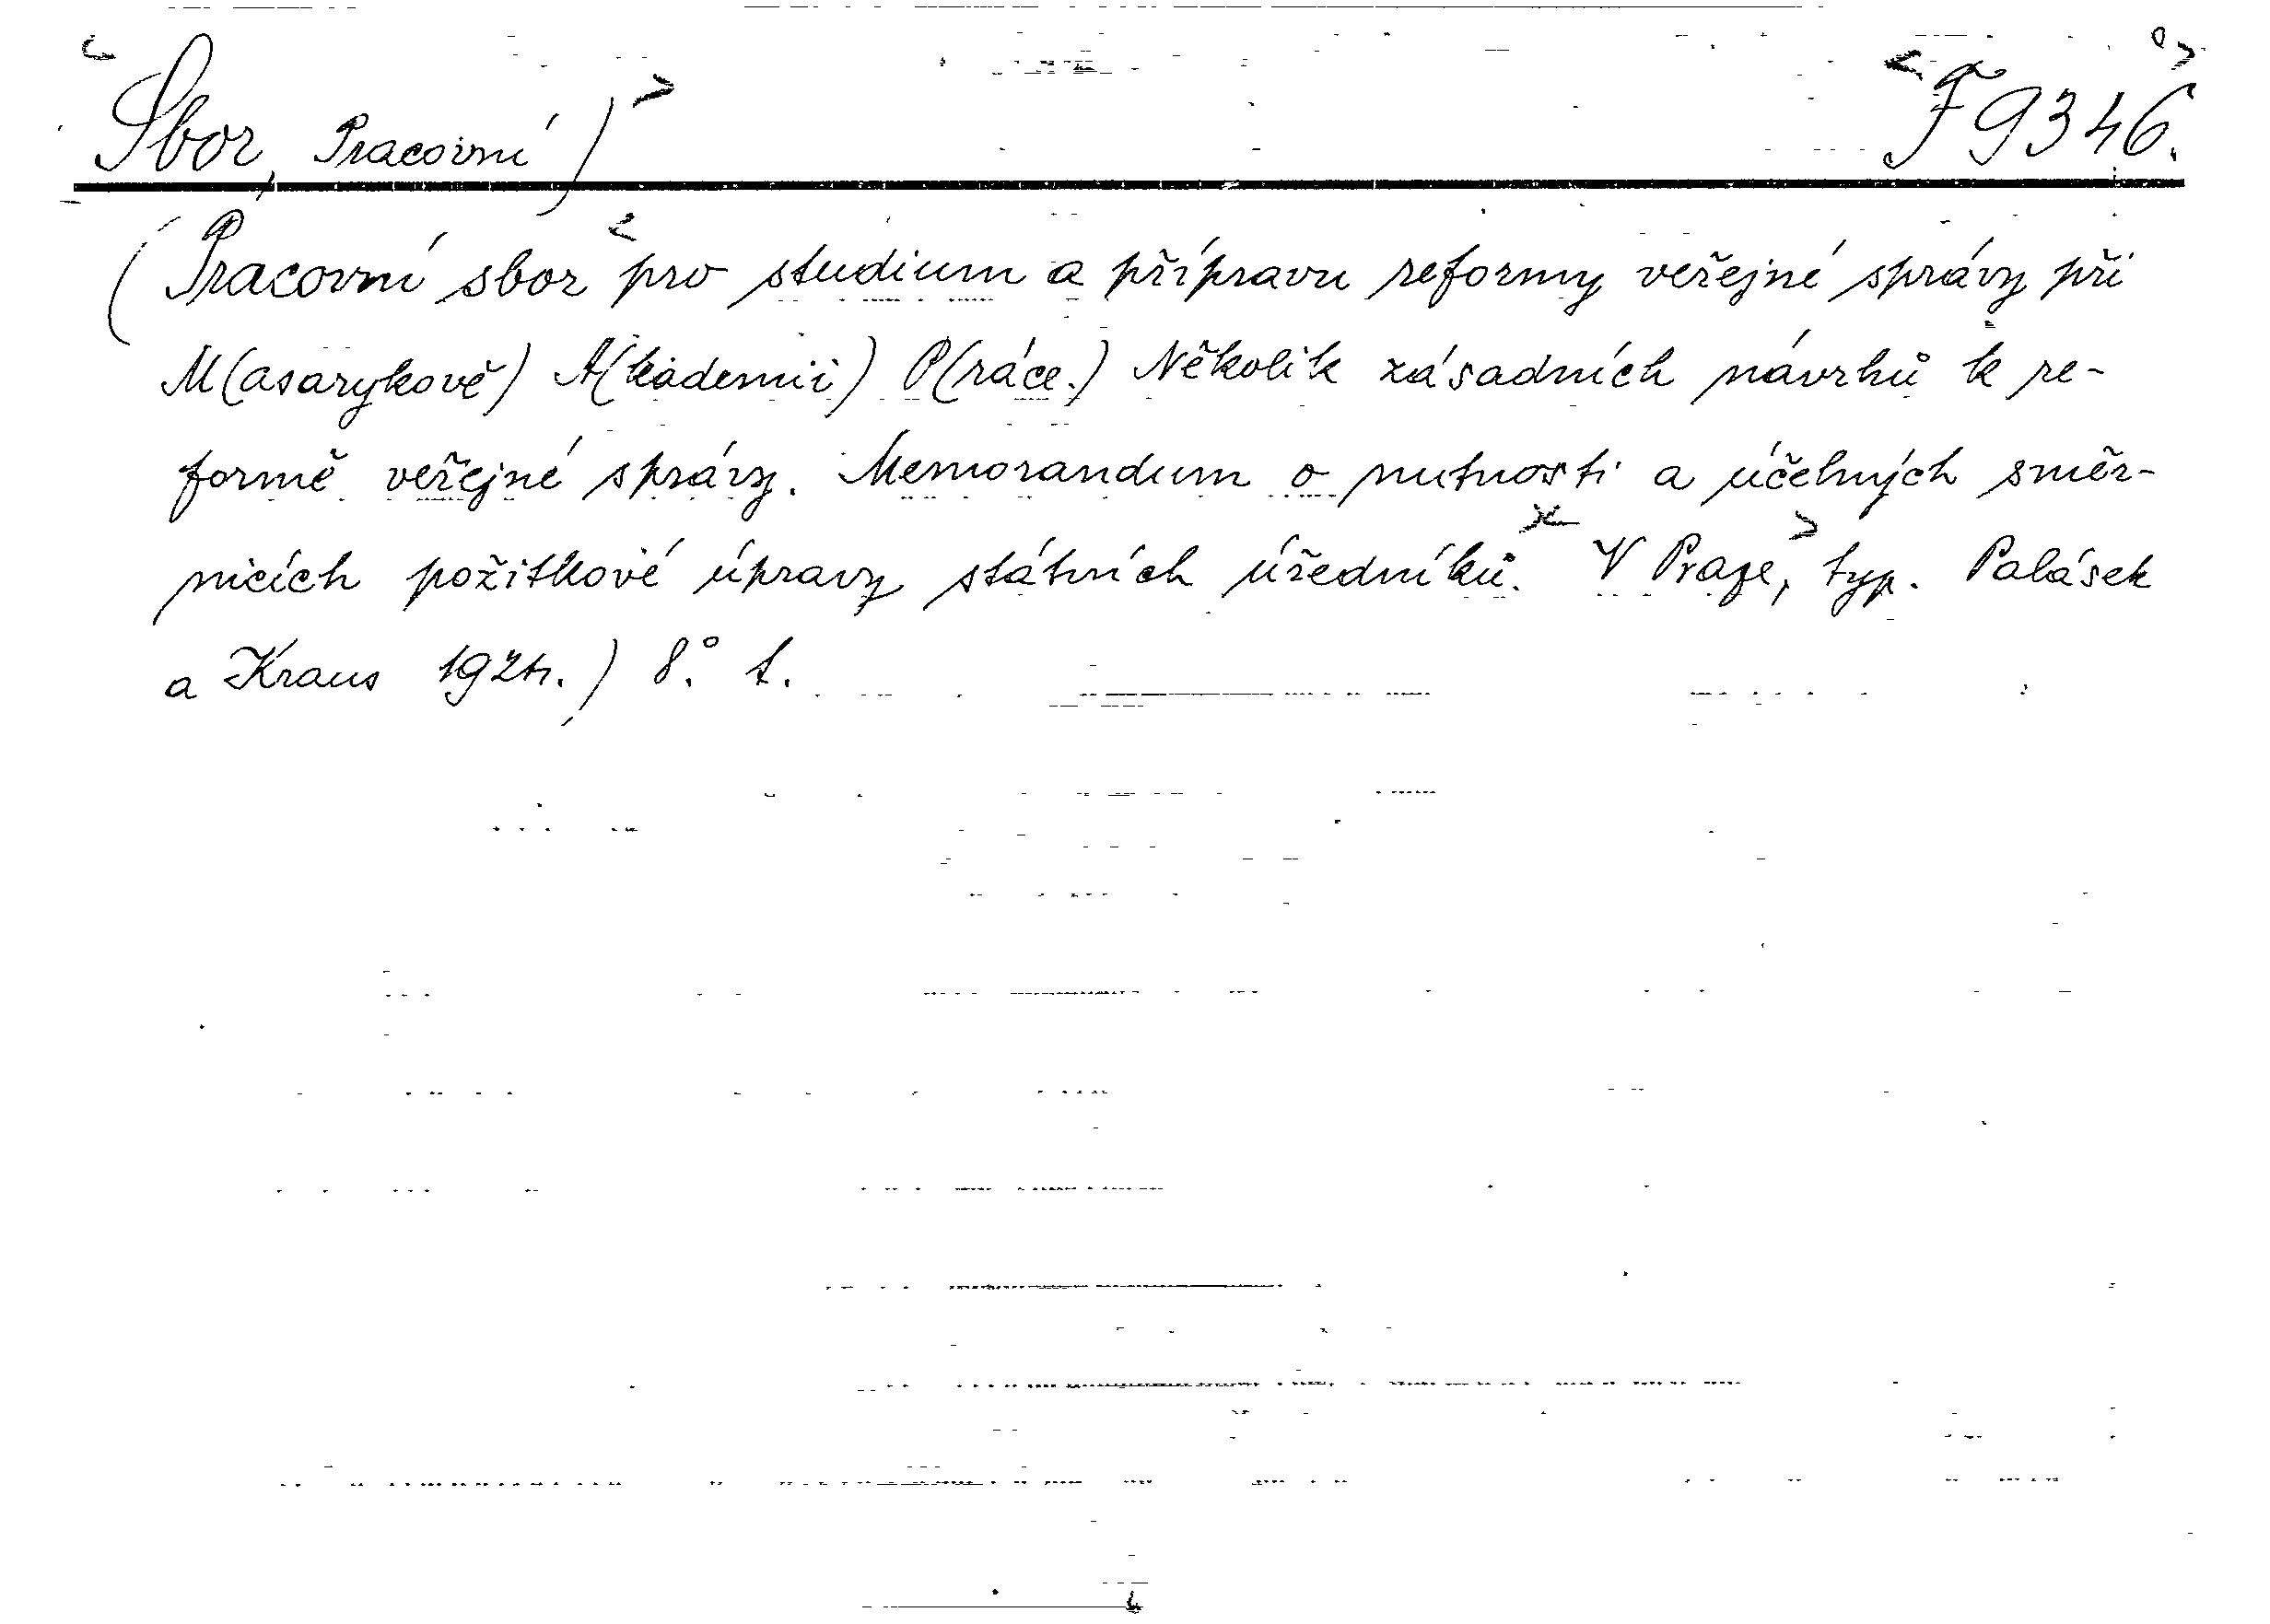 Sbor, Pracovní) F 9346.
(Pracovní sbor pro studium a přípravu reformy veřejné správy při
M(asarykově) A(kademii) P(ráce.) Několik zásadních návrhů k re-
formě veřejné správy. Memorandum o nutnosti a účelných směr-
nicích požitkové úpravy státních úředníků. V Praze, typ. Palásek
a Kraus 1924.) 8° 1.